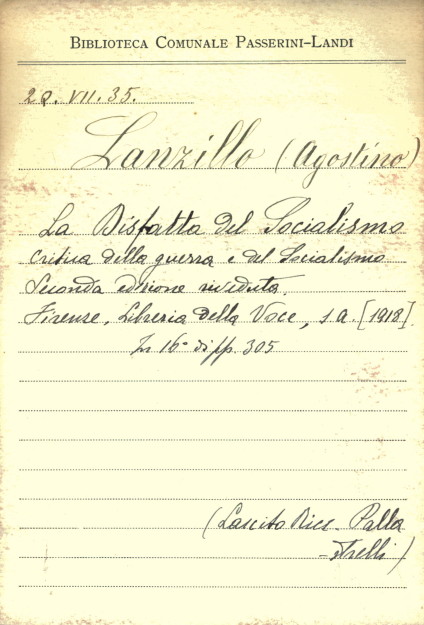 BIBLIOTECA COMUNALE PASSERINI-LANDI
2Q. VII. 35.
Lanzillo (Agostino)
La Disfatta del Socialismo
Critica della guerra e del Socialismo
Seconda edizione riveduta.
Firenze, Libreria della Voce, s. a. [1918].
In 16° di pp. 305
(Lascito Ricc. Palla
-strelli)